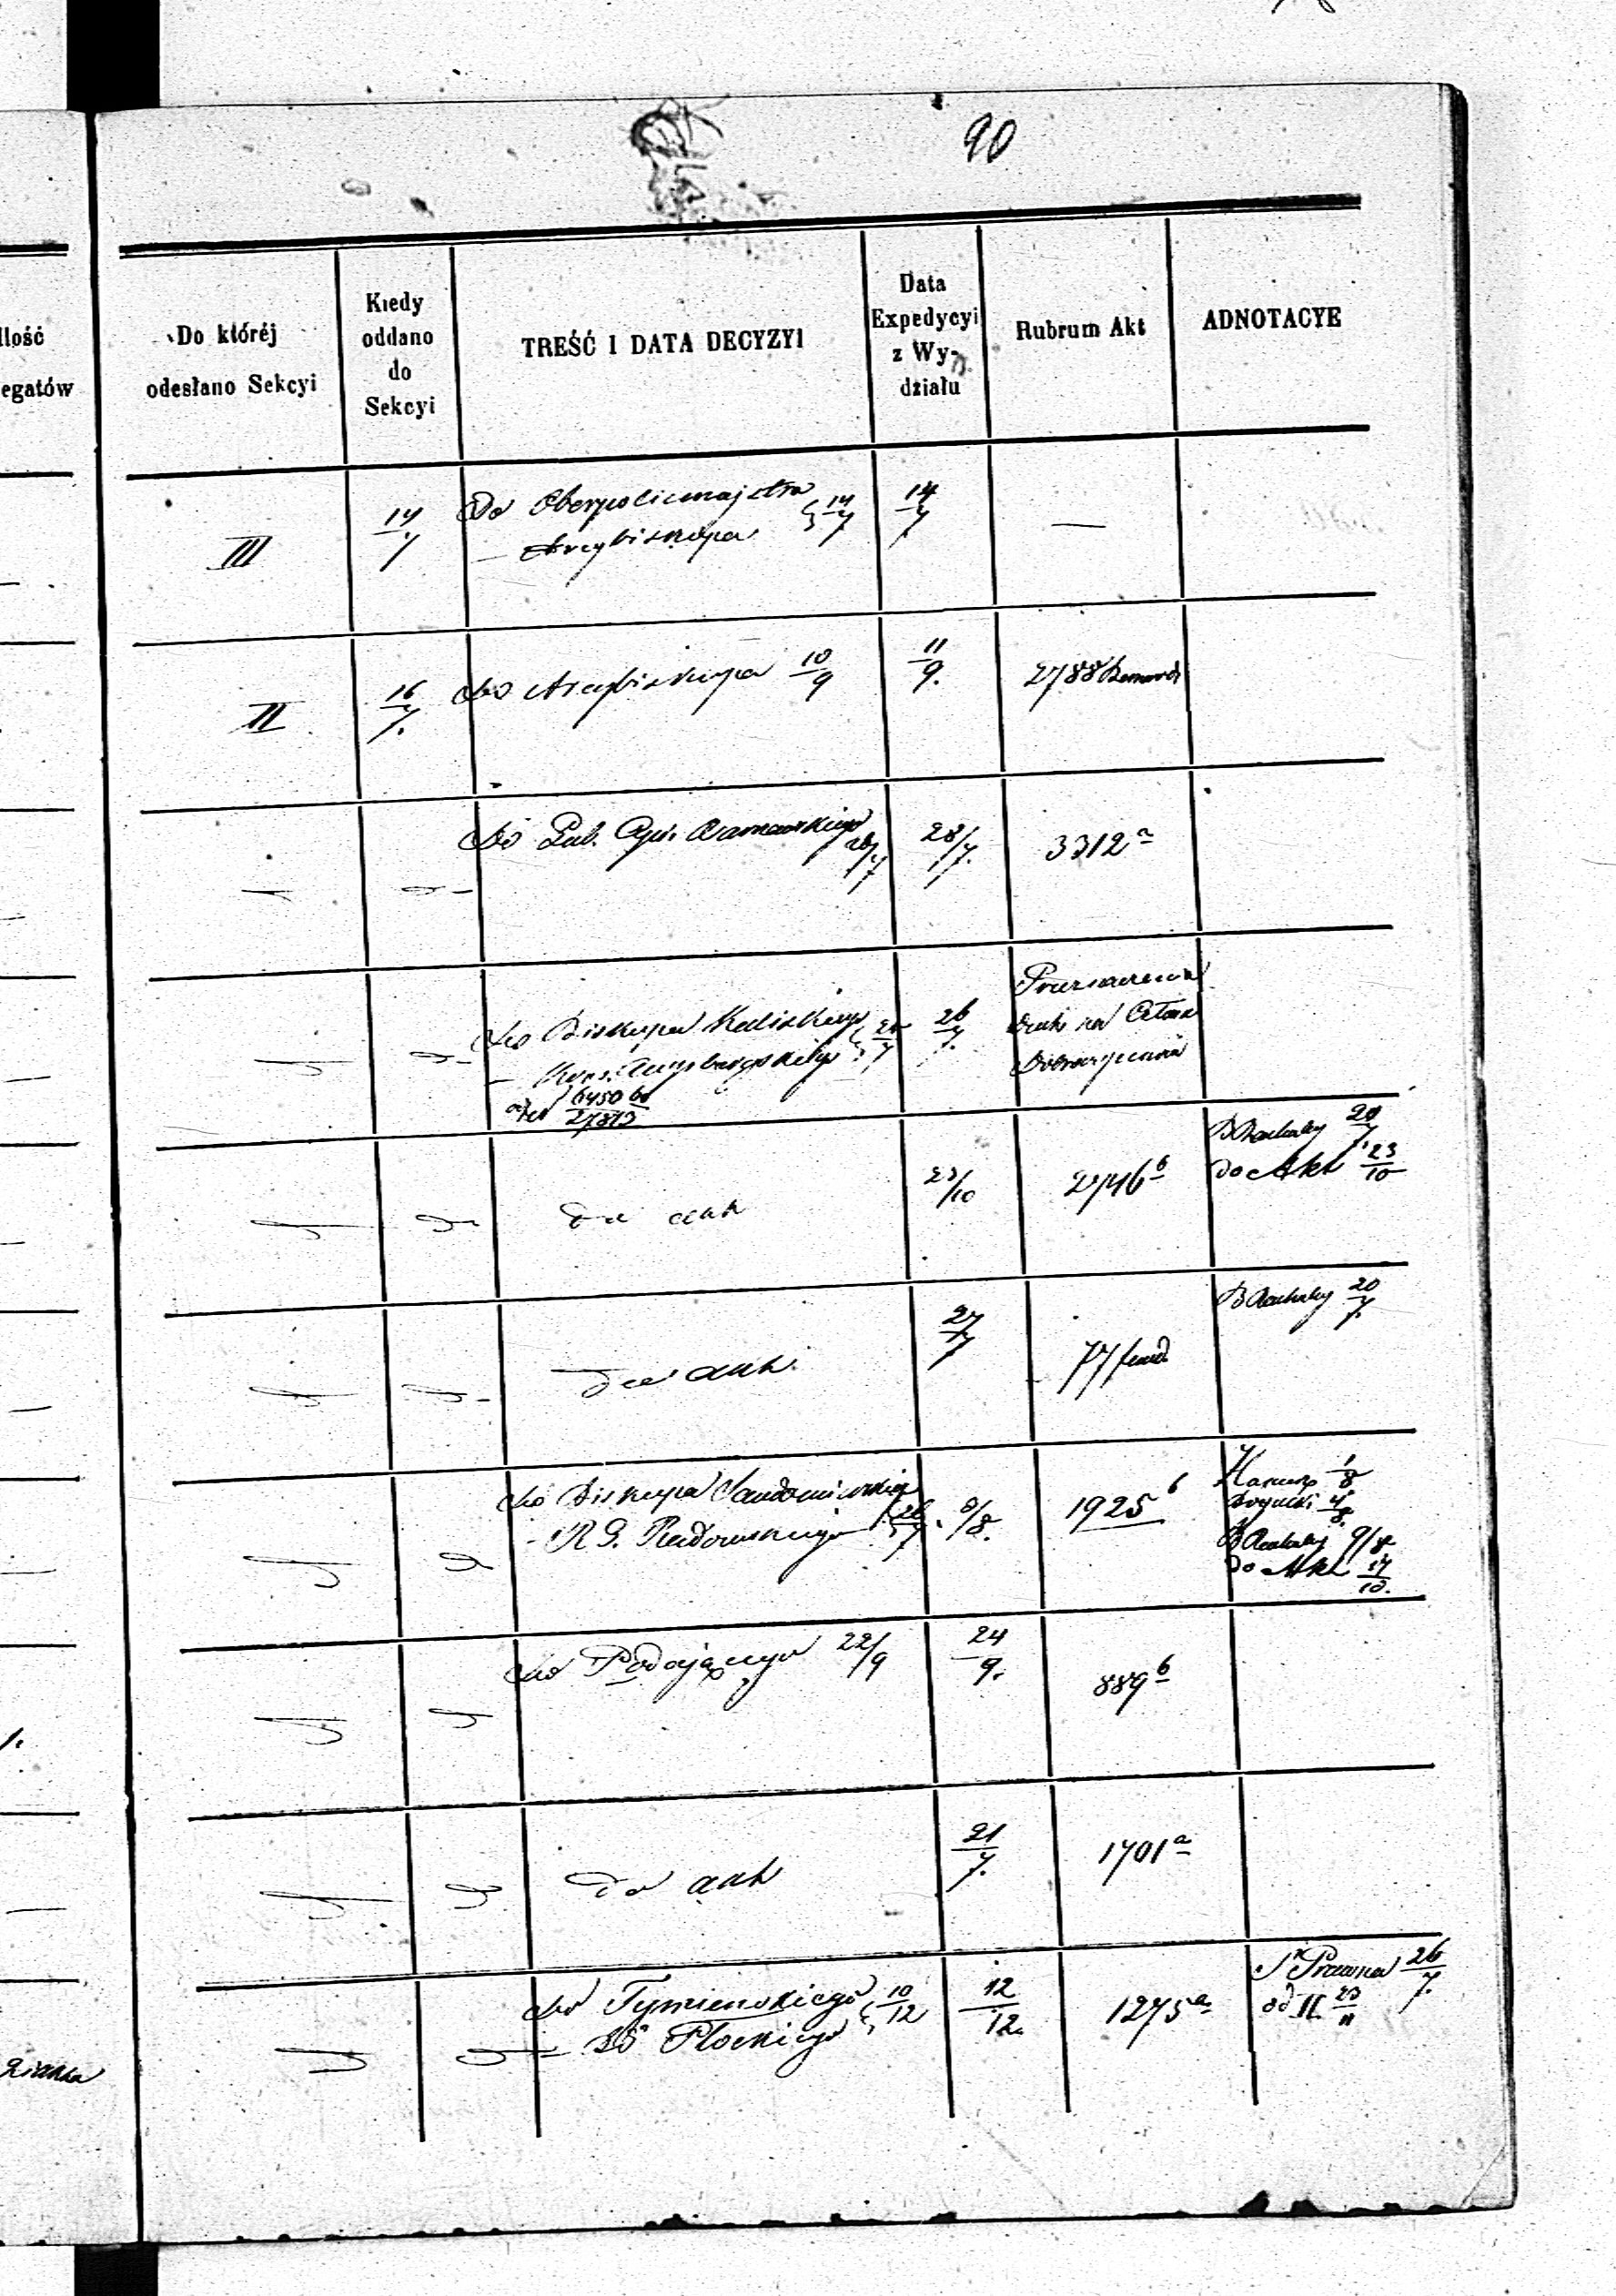 90
Ilość
egatów
Do któréj
odesłano Sekcyi
Kiedy
oddano
do
Sekcyi
TREŚĆ I DATA DECYZYI
Data
Expedycyi
z Wy-
działu
Rubrum Akt
ADNOTACYE
III
14/7
Do Oberpolicmajstra
— Arcybiskupa 14/7
14/7
—
II
16/7.
Do Arcybiskupa 10/9
11/9.
2788
Do Gub. Cyw. Warszawskiego 28/7
28/7.
3312 a
Do Biskupa Kaliskiego
— Kons. Augsburgskiego
6450
26/7.
do akt
23/10
2746 b
20/7
do Akt 23/10
do akt
27/7
77
20/7.
Do Biskupa Sandomirskiego
- R. G. Radomskiego 26/7
8/8.
1925 b
1/8
9/8
do Akt 17/10.
Do Podającego 22/9
24/9.
889 b
do akt
21/7.
1701 a
Do Tymienskiego 10/12
— Do Płockiego
12/12.
1275 a
S. Prawna 26/7.
od II 20/11